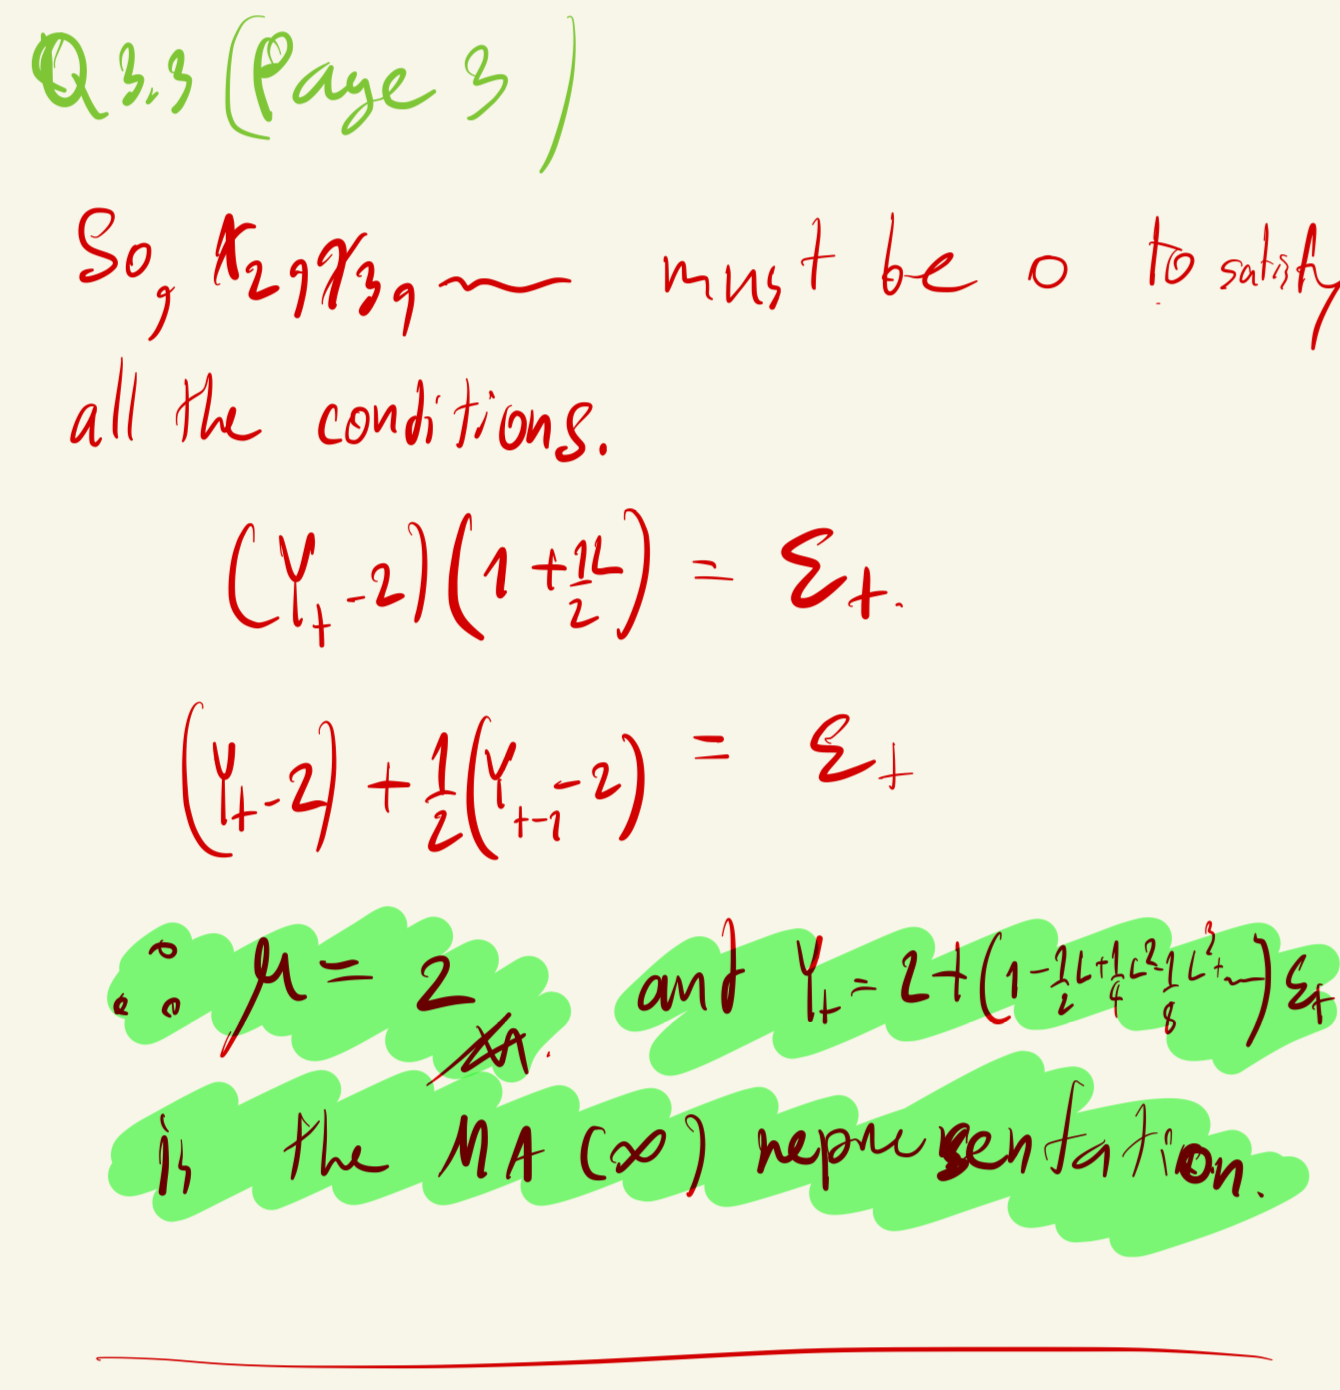 Q3.3 (Page 3)
So, x₂, x₃, ~ must be 0 to satisfy
all the conditions.
(Yₜ-2)(1+½L) = Σₜ.
(Yₜ-2)+½(Yₜ₋₁-2) = Σₜ
∴ μ = 2 . and Yₜ = 2+(1-½L+¼L²-⅛L³+~)Σₜ
is the MA(∞) representation.